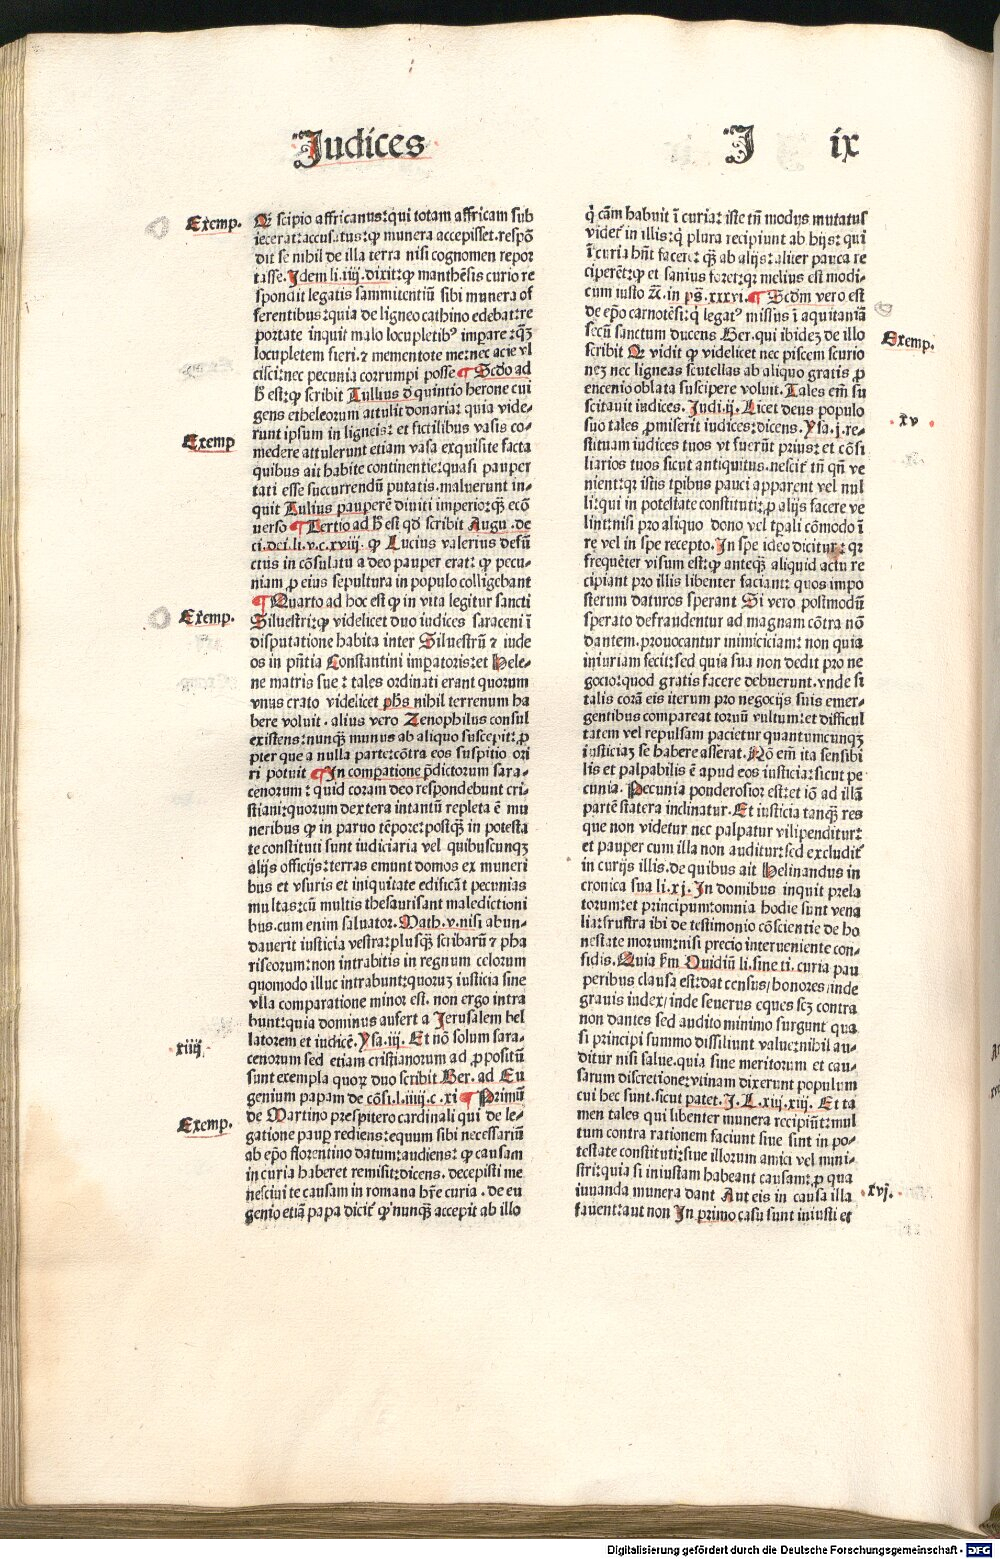 Judices
J ix
Exemp.
Qꝛ scipio affricanus: qui totam affricam sub
iecerat: accusatus: ꝙ munera accepisset. respō
dit se nihil de illa terra nisi cognomen repor
tasse. Idem li. iiij. dixit: ꝙ manthēsis curio re
spondit legatis sammitentiū sibi munera of
ferentibus: quia de ligneo cathino edebat: re
portate inquit malo locupletibꝰ imꝑare: qᷓꝫ
locupletem fieri. ⁊ mementote me: nec acie vl
cisci: nec pecunia corrumpi posse ¶ Scdo ad
h̄ est: ꝙ scribit Tullius d̄ quintio herone cui
gens etheleorum attulit donaria: quia vide-
runt ipsum in ligneis: et fictilibus vasis co-
Exemp
medere attulerunt etiam vasa exquisite facta
quibus ait habite continentie: quasi pauper
tati esse succurrendū putatis. maluerunt in-
quit Tullius pauperē diuiti imperio: qᷓꝫ ecō
uerso ¶ Tertio ad h̄ est qd̄ scribit Augu. de
ci. dei. li. v. c. xviij. ꝙ Lucius valerius defū
ctus in cōsulatu a deo pauper erat: ꝙ pecu-
niam ꝓ eius sepultura in populo colligebant
¶ Quarto ad hoc est ꝙ in vita legitur sancti
Exemp.
Siluestri: ꝙ videlicet duo iudices saraceni ī
disputatione habita inter Siluestrū ⁊ iude
os in pn̄tia Constantini imꝑatoris: et Hele-
ne matris sue: tales ordinati erant quorum
vnus crato videlicet phs̄ nihil terrenum ha
bere voluit. alius vero Zenophilus consul
existens: nunqᷓꝫ munus ab aliquo suscepit: ꝓ
pter que a nulla parte: cōtra eos suspitio ori
ri potuit ¶ In comꝑatione p̄dictorum sara-
cenorum: quid coram deo respondebunt cri-
stiani: quorum dextera intantū repleta ē mu
neribus ꝙ in paruo tēpore: postqᷓꝫ in potesta
te constituti sunt iudiciaria vel quibuscunqꝫ
alijs officijs: terras emunt domos ex muneri
bus et vsuris et iniquitate edificāt pecunias
multas: cū multis thesaurisant maledictioni
bus. cum enim saluator. Math. v. nisi abun-
dauerit iusticia vestra: plusqᷓꝫ scribarū ⁊ pha
riseorum: non intrabitis in regnum celorum
quomodo illuc intrabunt: quoruꝫ iusticia sine
vlla comparatione minor est. non ergo intra
bunt: quia dominus aufert a Jerusalem bel
xiiij.
latorem et iudicē. Ysa. iij. Et nō solum sara-
cenorum sed etiam cristianorum ad ꝓpositū
sunt exempla quoꝝ duo scribit Ber. ad Eu
genium papam de cōsi. l. iiij. c. xi ¶ Primū
Exemp.
de Martino prespitero cardinali qui de le-
gatione pauꝑ rediens: equum sibi necessariū
ab ep̄o florentino datum: audiens: ꝙ causam
in curia haberet remisit: dicens. decepisti me
nesciui te causam in romana hr̄e curia. de eu
genio etiā papa dicit̄ ꝙ nunqᷓꝫ accepit ab illo
q̄ cām habuit ī curia: iste tn̄ modus mutatus
videt̄ in illis: q̄ plura recipiunt ab hijs: qui
ī curia hn̄t facere: qᷓꝫ ab alijs: aliter pauca re
ciperēt: ꝙ et sanius foret: qꝛ melius est modi-
cum iusto ⁊c̄. in ps̄. xxxvi. ¶ Scdm vero est
de ep̄o carnotēsi: q̄ legatꝰ missus ī aquitaniā
Exemp.
secū sanctum ducens Ber. qui ibideꝫ de illo
scribit Qꝛ vidit ꝙ videlicet nec piscem scurio
neꝫ nec ligneas scutellas ab aliquo gratis ꝓ
encenio oblata suscipere voluit. Tales em̄ su
scitauit iudices. Judi. ij. Licet deus populo
xv
suo tales ꝓmiserit iudices: dicens. Ysa. j. re-
stituam iudices tuos vt fuerūt prius: et cōsi
liarios tuos sicut antiquitus. nescit̄ tn̄ qn̄ ve
nient: qꝛ istis tꝑibus pauci apparent vel nul
li: qui in potestate constituti: ꝓ alijs facere ve
lint: nisi pro aliquo dono vel tꝑali cōmodo ī
re vel in spe recepto. In spe ideo dicitur: qꝛ
frequēter visum est: ꝙ anteqᷓꝫ aliquid actu re
cipiant pro illis libenter faciant: quos impo
sterum daturos sperant Si vero postmodū
sperato defraudentur ad magnam cōtra nō
dantem. prouocantur inimiciciam: non quia
iniuriam fecit: sed quia sua non dedit pro ne
gocio: quod gratis facere debuerunt. vnde si
talis corā eis iterum pro negocijs suis emer-
gentibus compareat toruū vultum: et difficul
tatem vel repulsam pacietur quantumcunqꝫ
iusticiaꝫ se habere asserat. Nō em̄ ita sensibi
lis et palpabilis ē apud eos iusticia: sicut pe
cunia. Pecunia ponderosior est: et iō ad illā
partē statera inclinatur. Et iusticia tanqᷓꝫ res
que non videtur nec palpatur vilipenditur:
et pauper cum illa non auditur: sed excludit̄
in curijs illis. de quibus ait Helinandus in
cronica sua li. xj. In domibus inquit prela
torum: et principum: omnia hodie sunt vena
lia: frustra ibi de testimonio cōscientie de ho
nestate morum: nisi precio interueniente con-
fidis. Quia s̄m Ouidiū li. sine ti. curia pau
peribus clausa est: dat census/ honores/ inde
grauis iudex/ inde seuerus eques scꝫ contra
non dantes sed audito minimo surgunt qua
si principi summo dissiliunt value: nihil au-
ditur nisi salue. quia sine meritorum et cau-
sarum discretione: vtinam dixerunt populum
cui hec sunt. sicut patet. J. L. xij. xiij. Et ta
men tales qui libenter munera recipiūt: mul
tum contra rationem faciunt siue sint in po-
testate constituti: siue illorum amici vel mini-
stri: quia si iniustam habeant causam: ꝓ qua
iuuanda munera dant Aut eis in causa illa
xvj.
fauent: aut non In primo casu sunt iniusti et
Digitalisierung gefördert durch die Deutsche Forschungsgemeinschaft - DFG